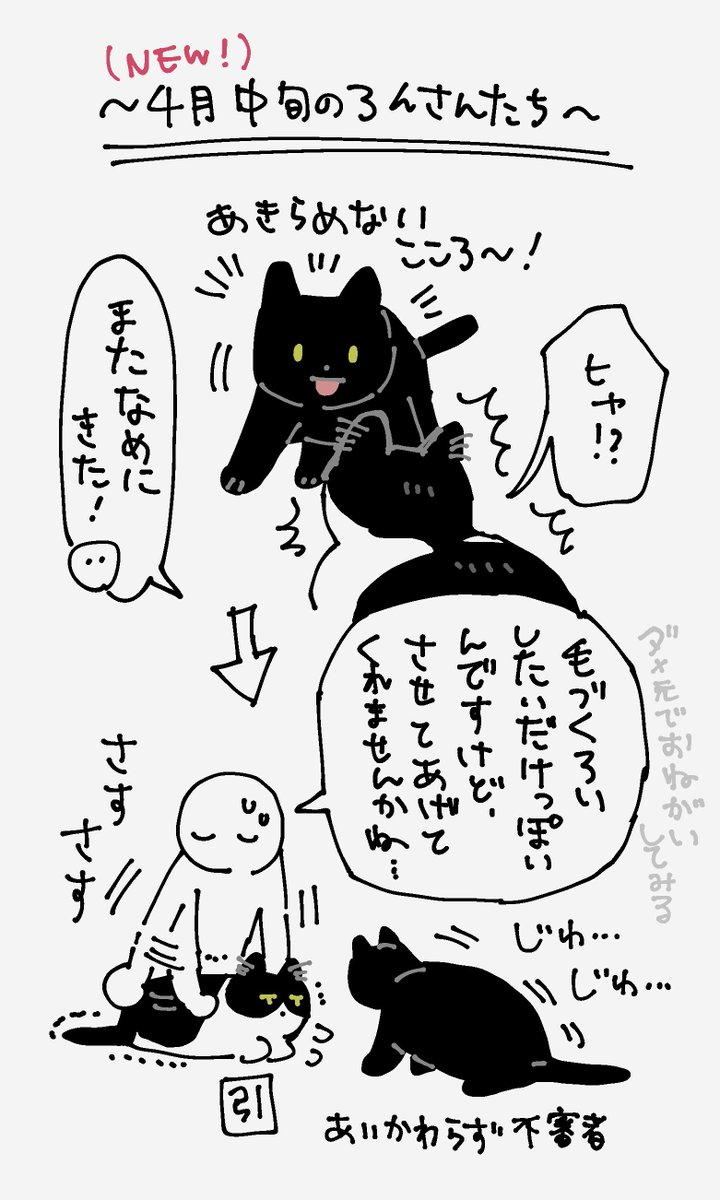 (NEW!)
〜4月中旬のろんさんたち〜
あきらめない
こころ〜!
ヒャ!?
またなめに
きた!
毛づくろい
したいだけっぽい
んですけど、
させてあげて
くれませんかね…
ダメ元でおねがい
してみる
さす
さす
じわ…
じわ…
引
あいかわらず不審者